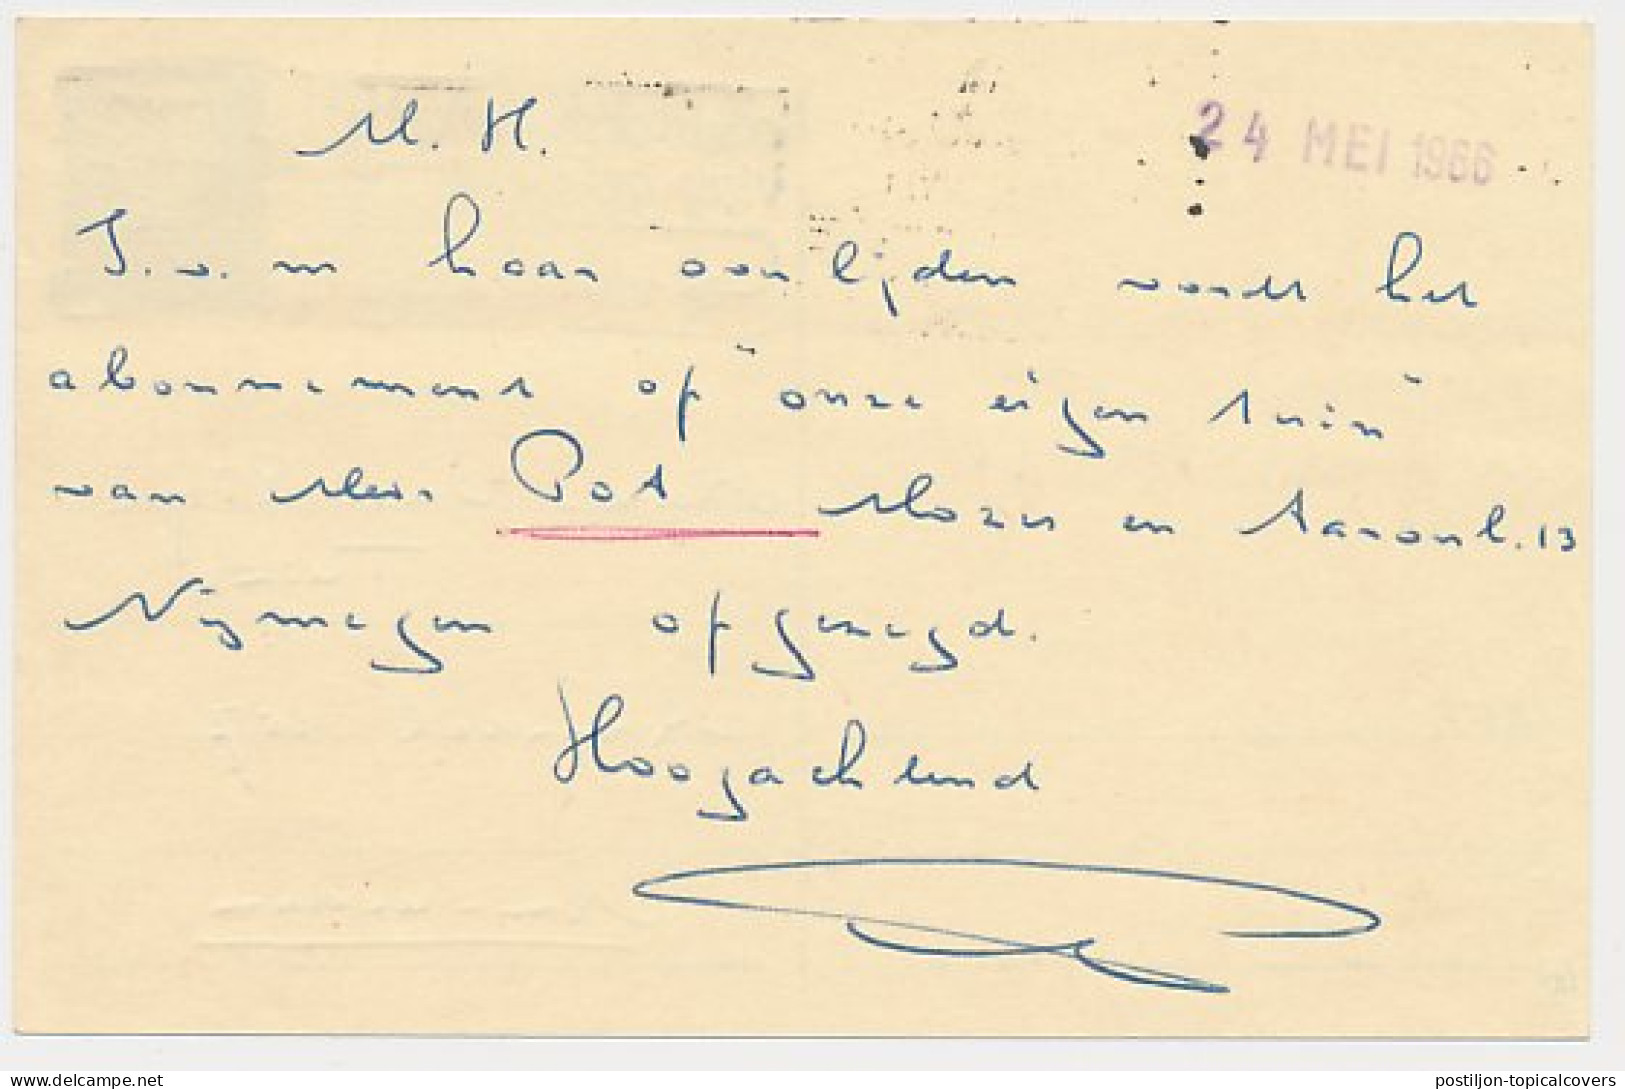 M. H.
24 MEI 1966
I.v.m haar overlijden wordt het
abonnement op "onze eigen tuin"
van Mevr. Pot Mozes en Aaronl. 13
Nijmegen opgezegd.
Hoogachtend
postiljon-topicalcovers
delcampe.net